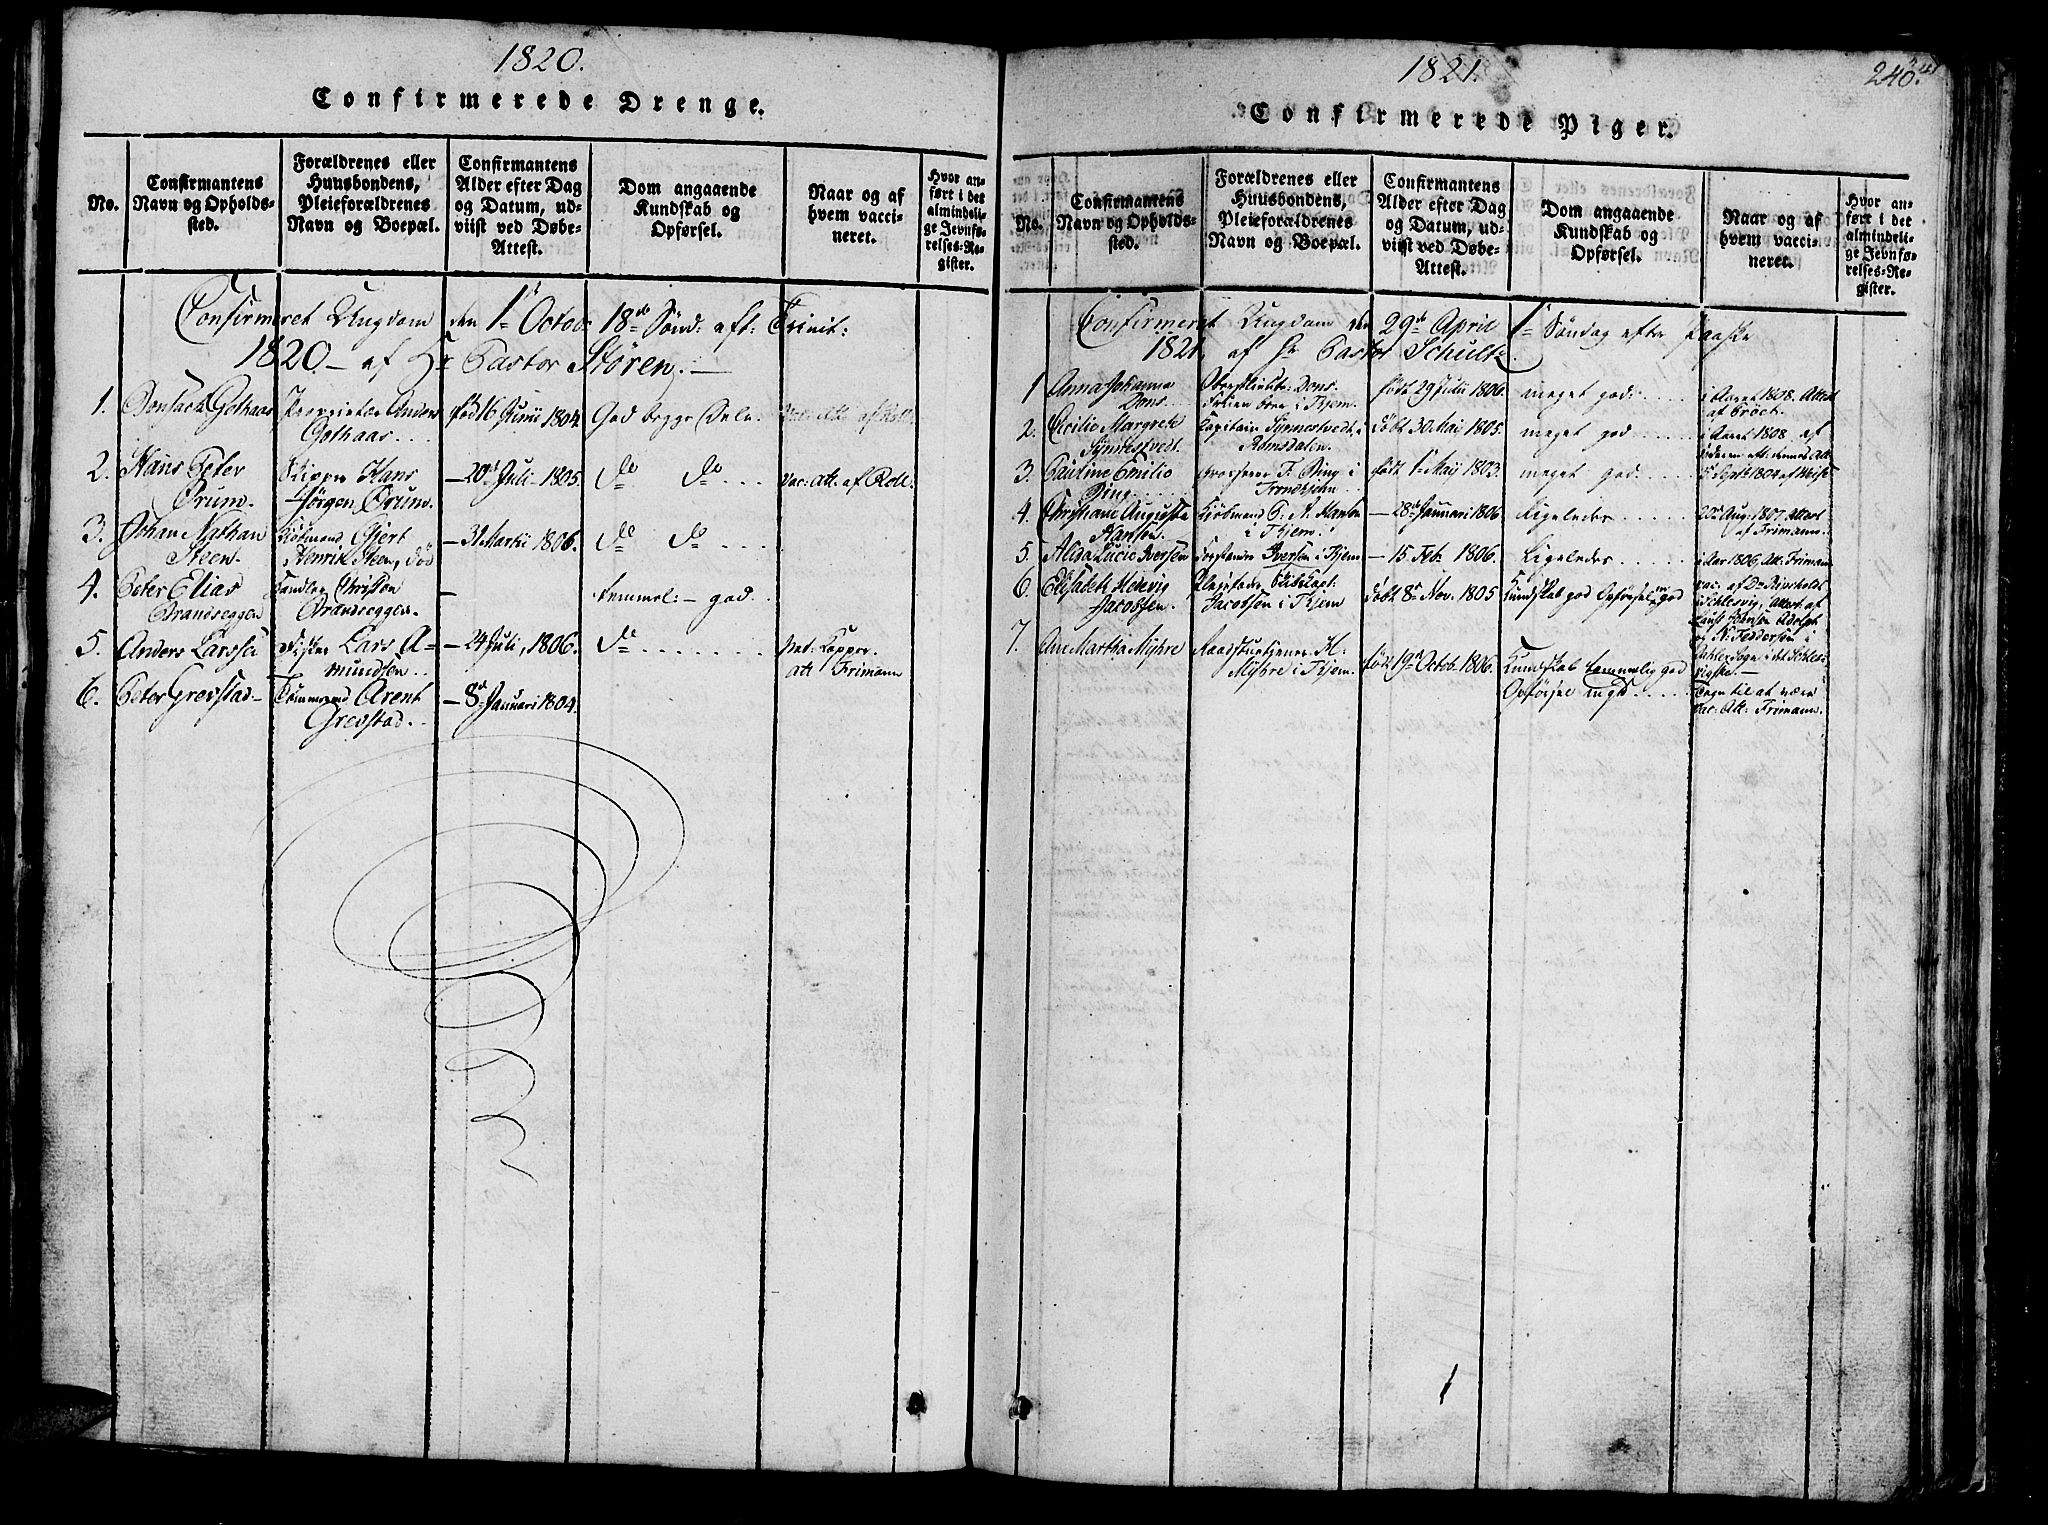 1820.
Confirmerede Drenge.
No.
Confirmantens
Navn og Opholds-
sted.
Forældrenes eller
Huusbondens,
Pleieforældrenes
Navn og Boepæl.
Confirmantens
Alder efter Dag
og Datum, ud-
viist ved Døbe-
Attest.
Dom angaaende
Kundskab og
Opførsel.
Naar og af
hvem vacci-
neret.
Hvor an-
ført i det
almindeli-
ge Jevnfø-
relses-Re-
gister.
Confirmeret Ungdom den 1te Octob: 18de Sønd: eft: Trinit:
1820 - af Hr Pastor Støren. -
1. Gothaas Anders
Gothaas . . .
født 16 Junii 1804
God begge Dele
2. Hans Peter
Ørum.
Skipper Hans
Jørgen Ørum.
- 20de Juli - 1805.
do do . . .
Vac: Att: af Roll.
3. Johan Nathan
Steen.
Kiøbmand Gjert
Henrik Steen, død
- 31 Martii 1806.
do do . . .
4. Peter Elias
Brandseggen
Handler Christen
Brandseggen.
-
temmel: - god . .
5. Anders Larssen
Lars A-
mundsen . .
- 24 Juli, 1806.
do . . . . . . .
Nat: Kopper.
att Frimann
6. Peter Grevstad
Arent
Grevstad. . .
- 8de Januari 1804.
1821.
240.
Confirmerede Piger.
No.
Confirmantens
Navn og Opholds-
sted.
Forældrenes eller
Huusbondens,
Pleieforældrenes
Navn og Boepæl.
Confirmantens
Alder efter Dag
og Datum, ud-
viist ved Døbe-
Attest.
Dom angaaende
Kundskab og
Opførsel.
Naar og af
hvem vacci-
neret.
Hvor an-
ført i det
almindeli-
ge Jevnfø-
relses-Re-
gister.
Confirmeret Ungdom den 29de April 1te Søndag efter Paaske
1821, af Hr Pastor Schultz.
1 Anna Johanna
Dons . .
Dons.
i Thjem.
født 29 Julii 1806.
meget god: . . . .
i Aaret 1808. Attest
af
2. Cecilie Margrete
Synnestvedt.
Capitain Synnestvedt, i
Romsdalen.
født 30 Mai 1805.
meget god . . . . .
i Aaret 1808 af
3. Pauline Emilie
Bing. . . .
Bing i
Trondhjem . .
født 1te Maij 1803.
meget god . . . . .
4. Christiane Augusta
Hansen.
Kjøbmand Hansen
i Thjem.
- 28de Januari 1806.
Ligeledes . . . . .
20de Aug: 1807. Attest
af Frimann.
5. Alida Lucie Iversen
Iversen i Thjem
- 15 Feb: 1806.
Ligeledes . . . . .
i Aar 1806, Att: Frimann
6. Elisabeth Hedevig
Jacobsen.
Jacobsen i Thjem
født 8de Nov. 1805
Kundskab god Opførsel m: god
vac: af Dr
i Slesvig, Attest. af
7. Ane Martha Myhre
Raadstuetjener H:
Myhre i Thjem.
født 19de Octob. 1806.
Kundskab temmelig god
Opførsel
Tegn til at være
vac: Att: Frimann.